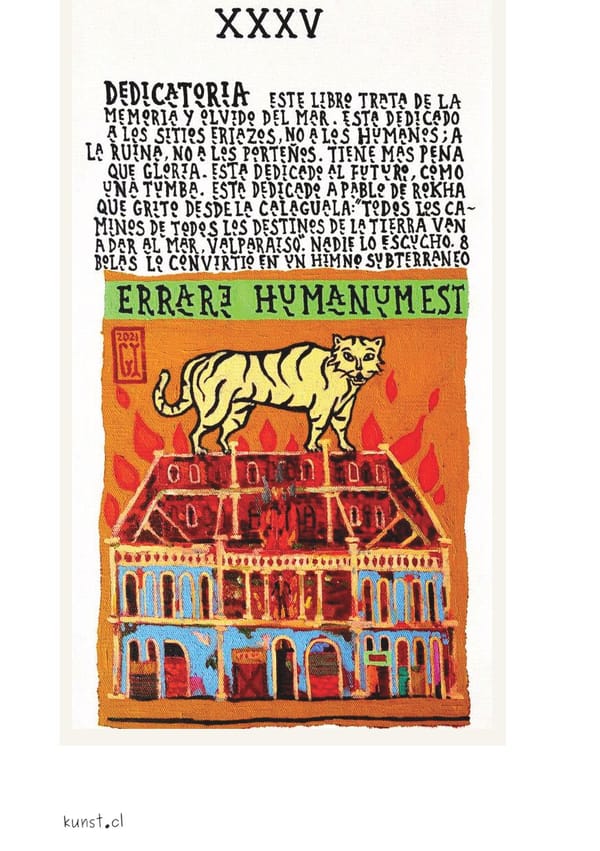 XXXV
DEDICATORIA ESTE LIBRO TRATA DE LA
MEMORIA Y OLVIDO DEL MAR. ESTA DEDICADO
A LOS SITIOS ERIAZOS, NO A LOS HUMANOS; A
LA RUINA, NO A LOS PORTEÑOS. TIENE MAS PENA
QUE GLORIA. ESTA DEDICADO AL FUTURO, COMO
UNA TUMBA. ESTA DEDICADO A PABLO DE ROKHA
QUE GRITO DESDE LA CALAGUALA: "TODOS LOS CA-
MINOS DE TODOS LOS DESTINOS DE LA TIERRA VAN
A DAR AL MAR, VALPARAISO". NADIE LO ESCUCHO. 8
BOLAS LO CONVIRTIO EN UN HIMNO SUBTERRANEO
ERRARE HUMANUM EST
2021
kunst.cl